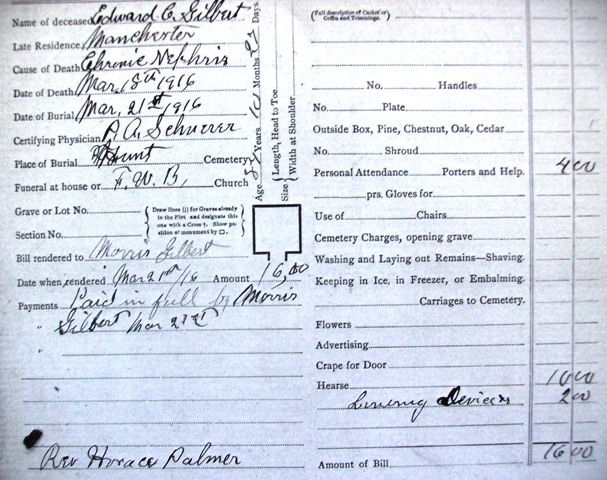 Name of deceased Edward C. Gilbert
Late Residence, Manchester
Cause of Death, Chronic Nephris
Date of Death, Mar. 18th 1916
Date of Burial, Mar. 21st 1916
Certifying Physician, P. A. Scherer
Place of Burial Hunt Cemetery
Funeral at house or F. W. B. Church
Grave or Lot No.
Section No.
Draw lines (|) for Graves already in the Plot and designate this one with a Cross †. Show position of monument by □.
Bill rendered to Morris Gilbert
Date when rendered Mar 21 /16 Amount 16,00
Payments Paid in full by Morris
" Gilbert Mar 21st
"
Rev Horace Palmer
Age Years, Months Days.
Size Length, Head to Toe
Width at Shoulder
(Full description of Casket or Coffin and Trimmings.)
No. Handles
No. Plate
Outside Box, Pine, Chestnut, Oak, Cedar
No. Shroud
Personal Attendance Porters and Help. 4 00
prs. Gloves for
Use of Chairs.
Cemetery Charges, opening grave
Washing and Laying out Remains—Shaving.
Keeping in Ice, in Freezer, or Embalming.
Carriages to Cemetery.
Flowers
Advertising
Crape for Door
Hearse 10 00
Lowering Devices 2 00
Amount of Bill 16 00